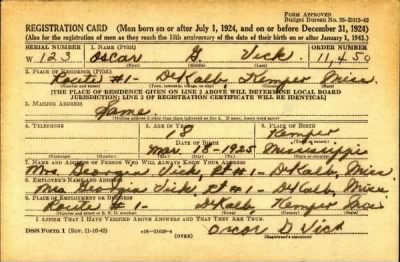 FORM APPROVED
Budget Bureau No. 33-R013-42
REGISTRATION CARD (Men born on or after July 1, 1924, and on or before December 31, 1924)
(Also for the registration of men as they reach the 18th anniversary of the date of their birth on or after January 1, 1943.)
SERIAL NUMBER 1. NAME (Print) ORDER NUMBER
W 123 Oscar G. Vick 11,450
(First) (Middle) (Last)
2. PLACE OF RESIDENCE (Print)
Route #1- DeKalb, Kemper Miss.
(Number and street) (Town, township, village, or city) (County) (State)
[THE PLACE OF RESIDENCE GIVEN ON LINE 2 ABOVE WILL DETERMINE LOCAL BOARD
JURISDICTION; LINE 2 OF REGISTRATION CERTIFICATE WILL BE IDENTICAL]
3. MAILING ADDRESS
Same
4. TELEPHONE 5. AGE IN YEARS 6. PLACE OF BIRTH
18 Kemper
DATE OF BIRTH
Mar 18-1925 Mississippi
7. NAME AND ADDRESS OF PERSON WHO WILL ALWAYS KNOW YOUR ADDRESS
Mrs. Georgia Vick, Rt #1- DeKalb, Miss.
8. EMPLOYER'S NAME AND ADDRESS
Mrs Georgia Vick Rt #1- DeKalb, Miss
9. PLACE OF EMPLOYMENT OR BUSINESS
Route #1- DeKalb, Kemper Miss
(Number and street or R. F. D. number) (Town) (County) (State)
I AFFIRM THAT I HAVE VERIFIED ABOVE ANSWERS AND THAT THEY ARE TRUE.
DSS Form 1 (Rev. 11-16-42) Oscar G Vick
(Registrant's signature)